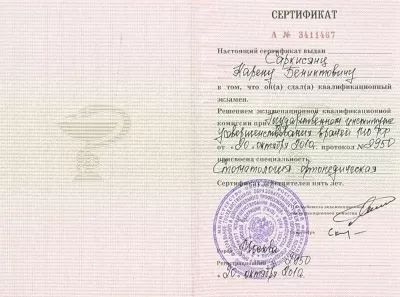 СЕРТИФИКАТ
А № 3411467
Настоящий сертификат выдан
Саркисянц
Карену Бениктовичу
в том, что он(а) сдал(а) квалификационный
экзамен.
Решением экзаменационной квалификационной
комиссии при Государственном институте
Усовершенствования врачей МО РФ
от «20» октября 2010г. протокол № 9950
присвоена специальность
Стоматология ортопедическая
Сертификат действителен пять лет.
Москва
9950
20 октября 2010г.